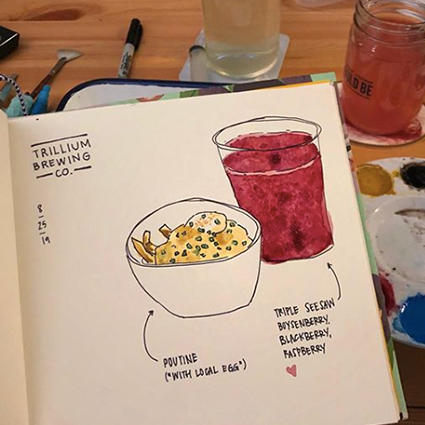 TRILLIUM
BREWING
CO.
8
25
19
POUTINE
("WITH LOCAL EGG")
TRIPLE SEESAW
BOYSENBERRY,
BLACKBERRY,
RASPBERRY
LD BE